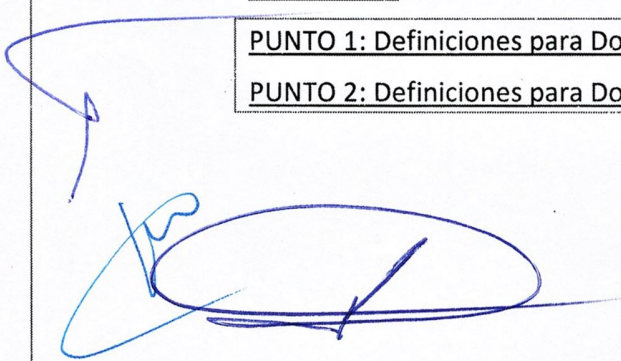 PUNTO 1: Definiciones para Do
PUNTO 2: Definiciones para Do